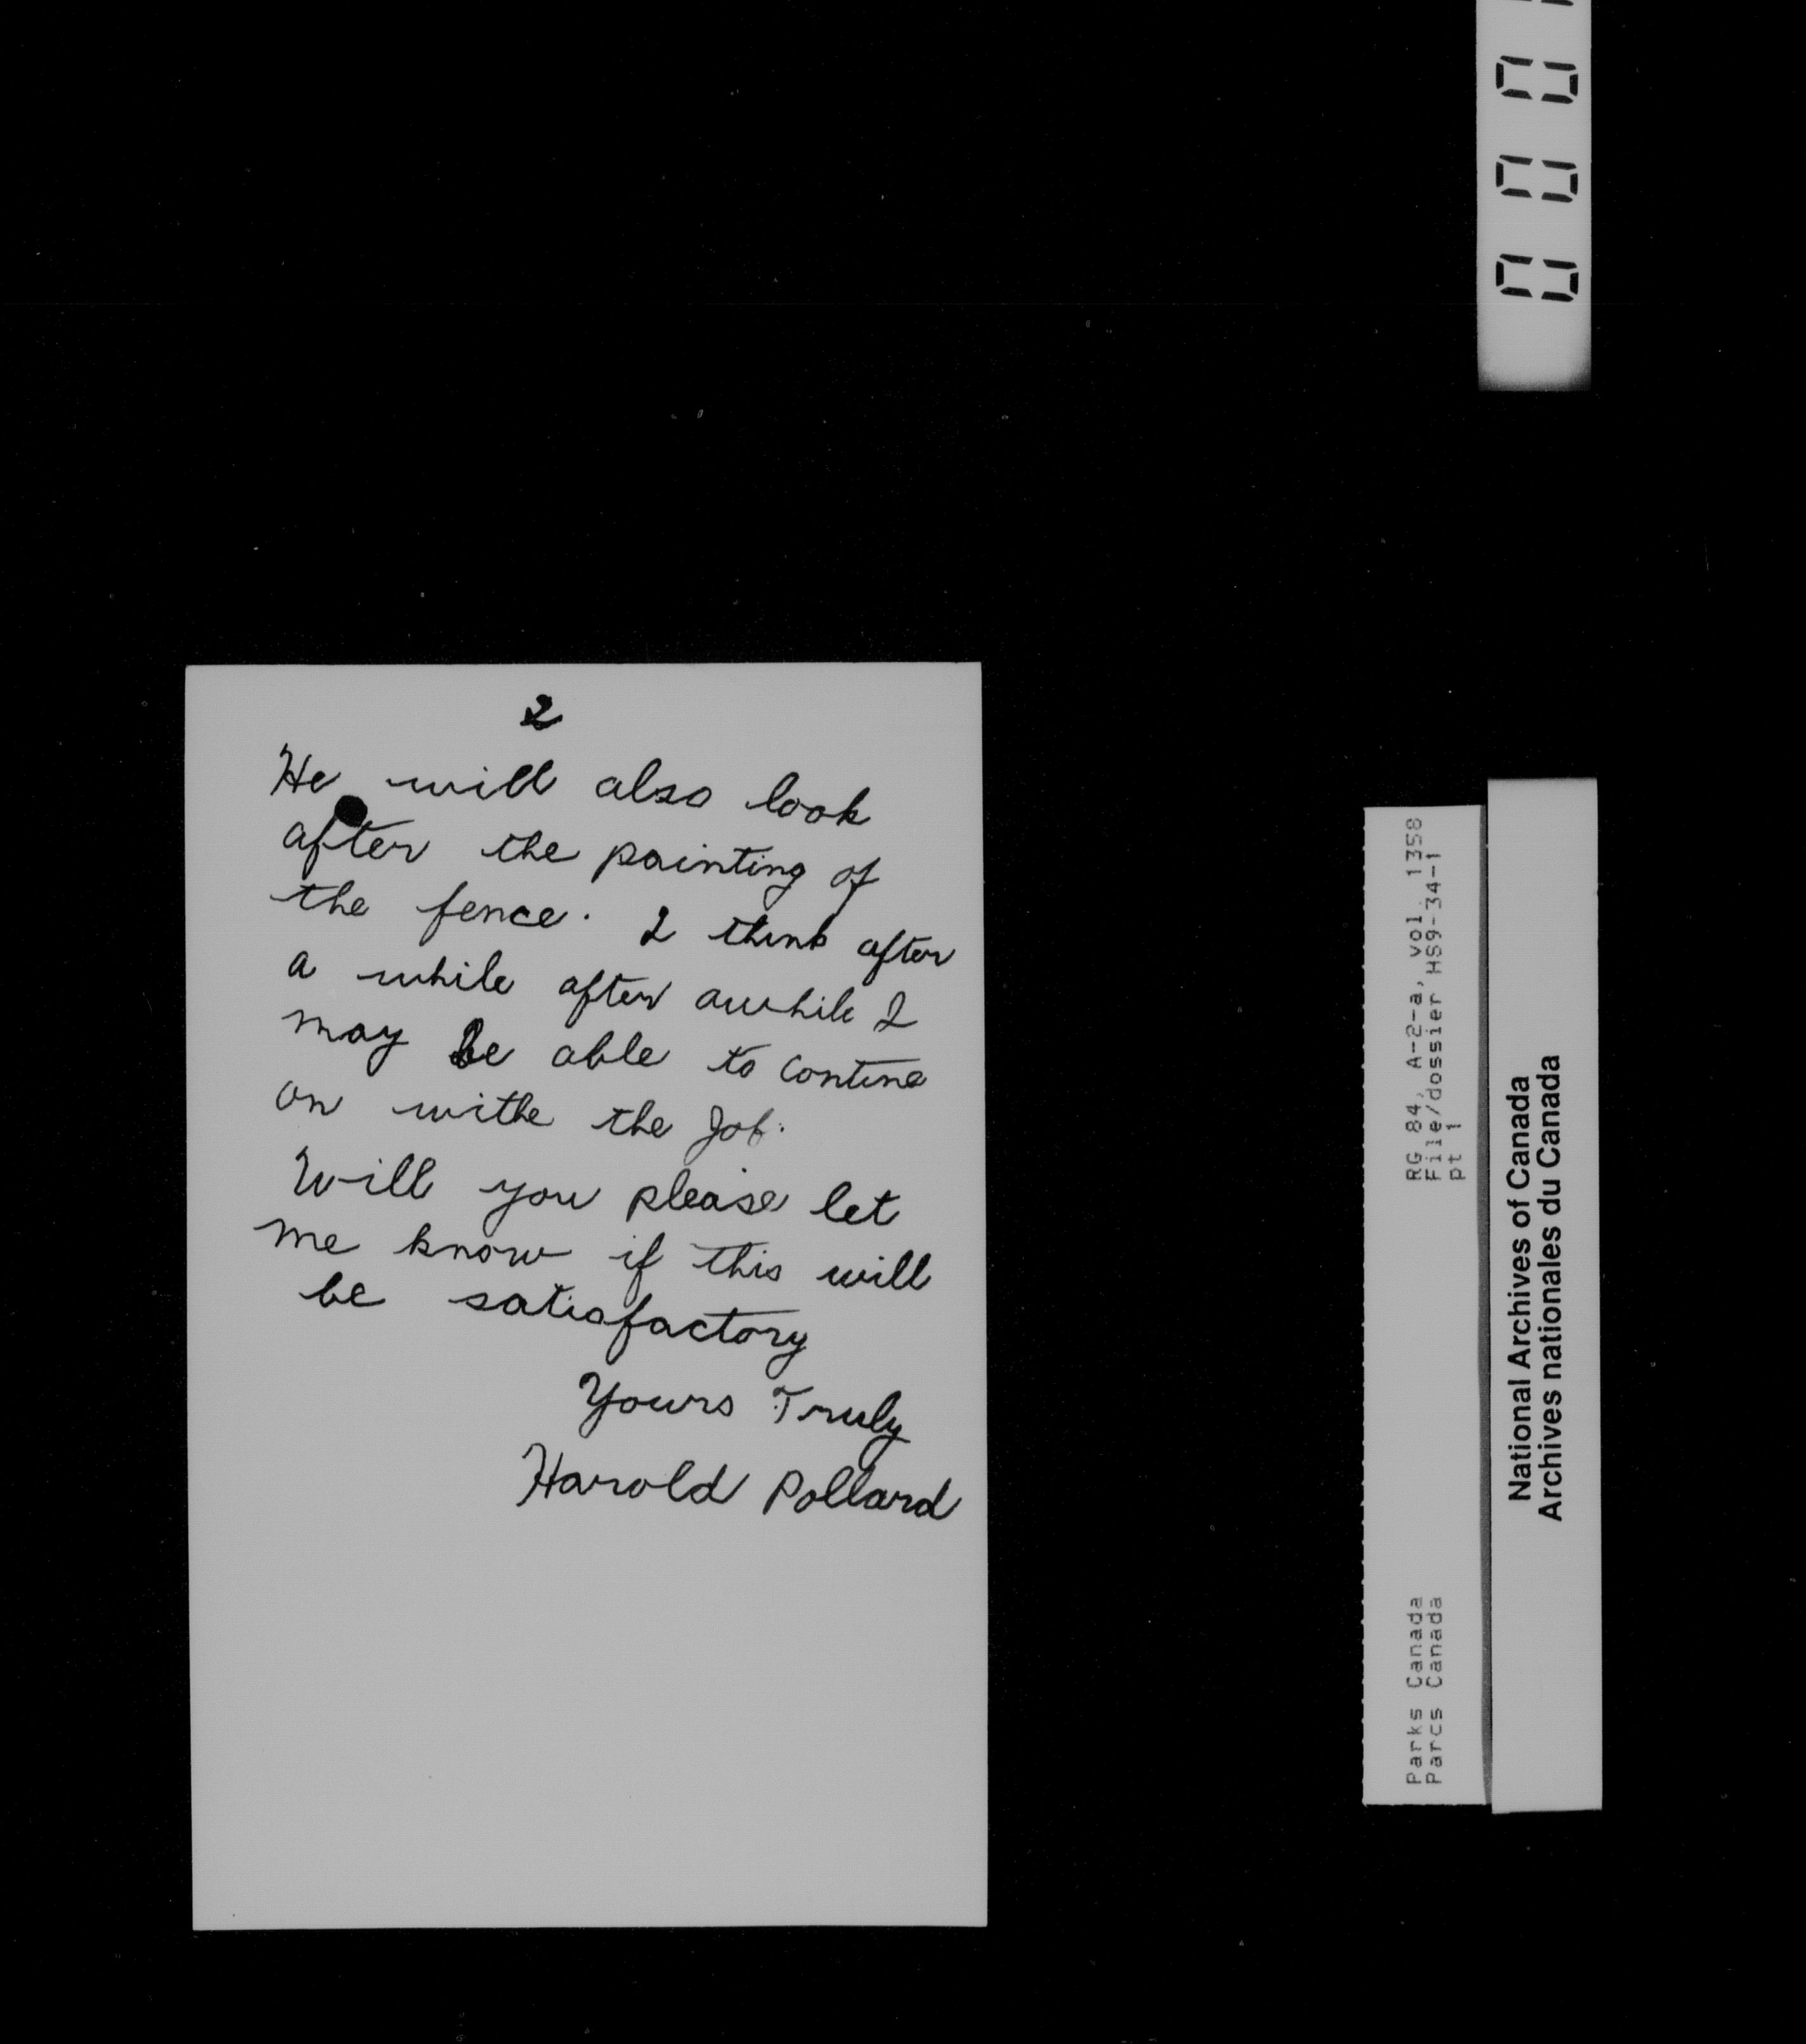 2
He will also look
after the painting of
the fence. I think after
a while after awhile I
may be able to contine
on withe the Job.
Will you please let
me know if this will
be satisfactory
Yours Truly
Harold Pollard
RG 84, A-2-a, vol. 1358
File/dossier HS9-34-1
pt 1
Parks Canada
Parcs Canada
National Archives of Canada
Archives nationales du Canada